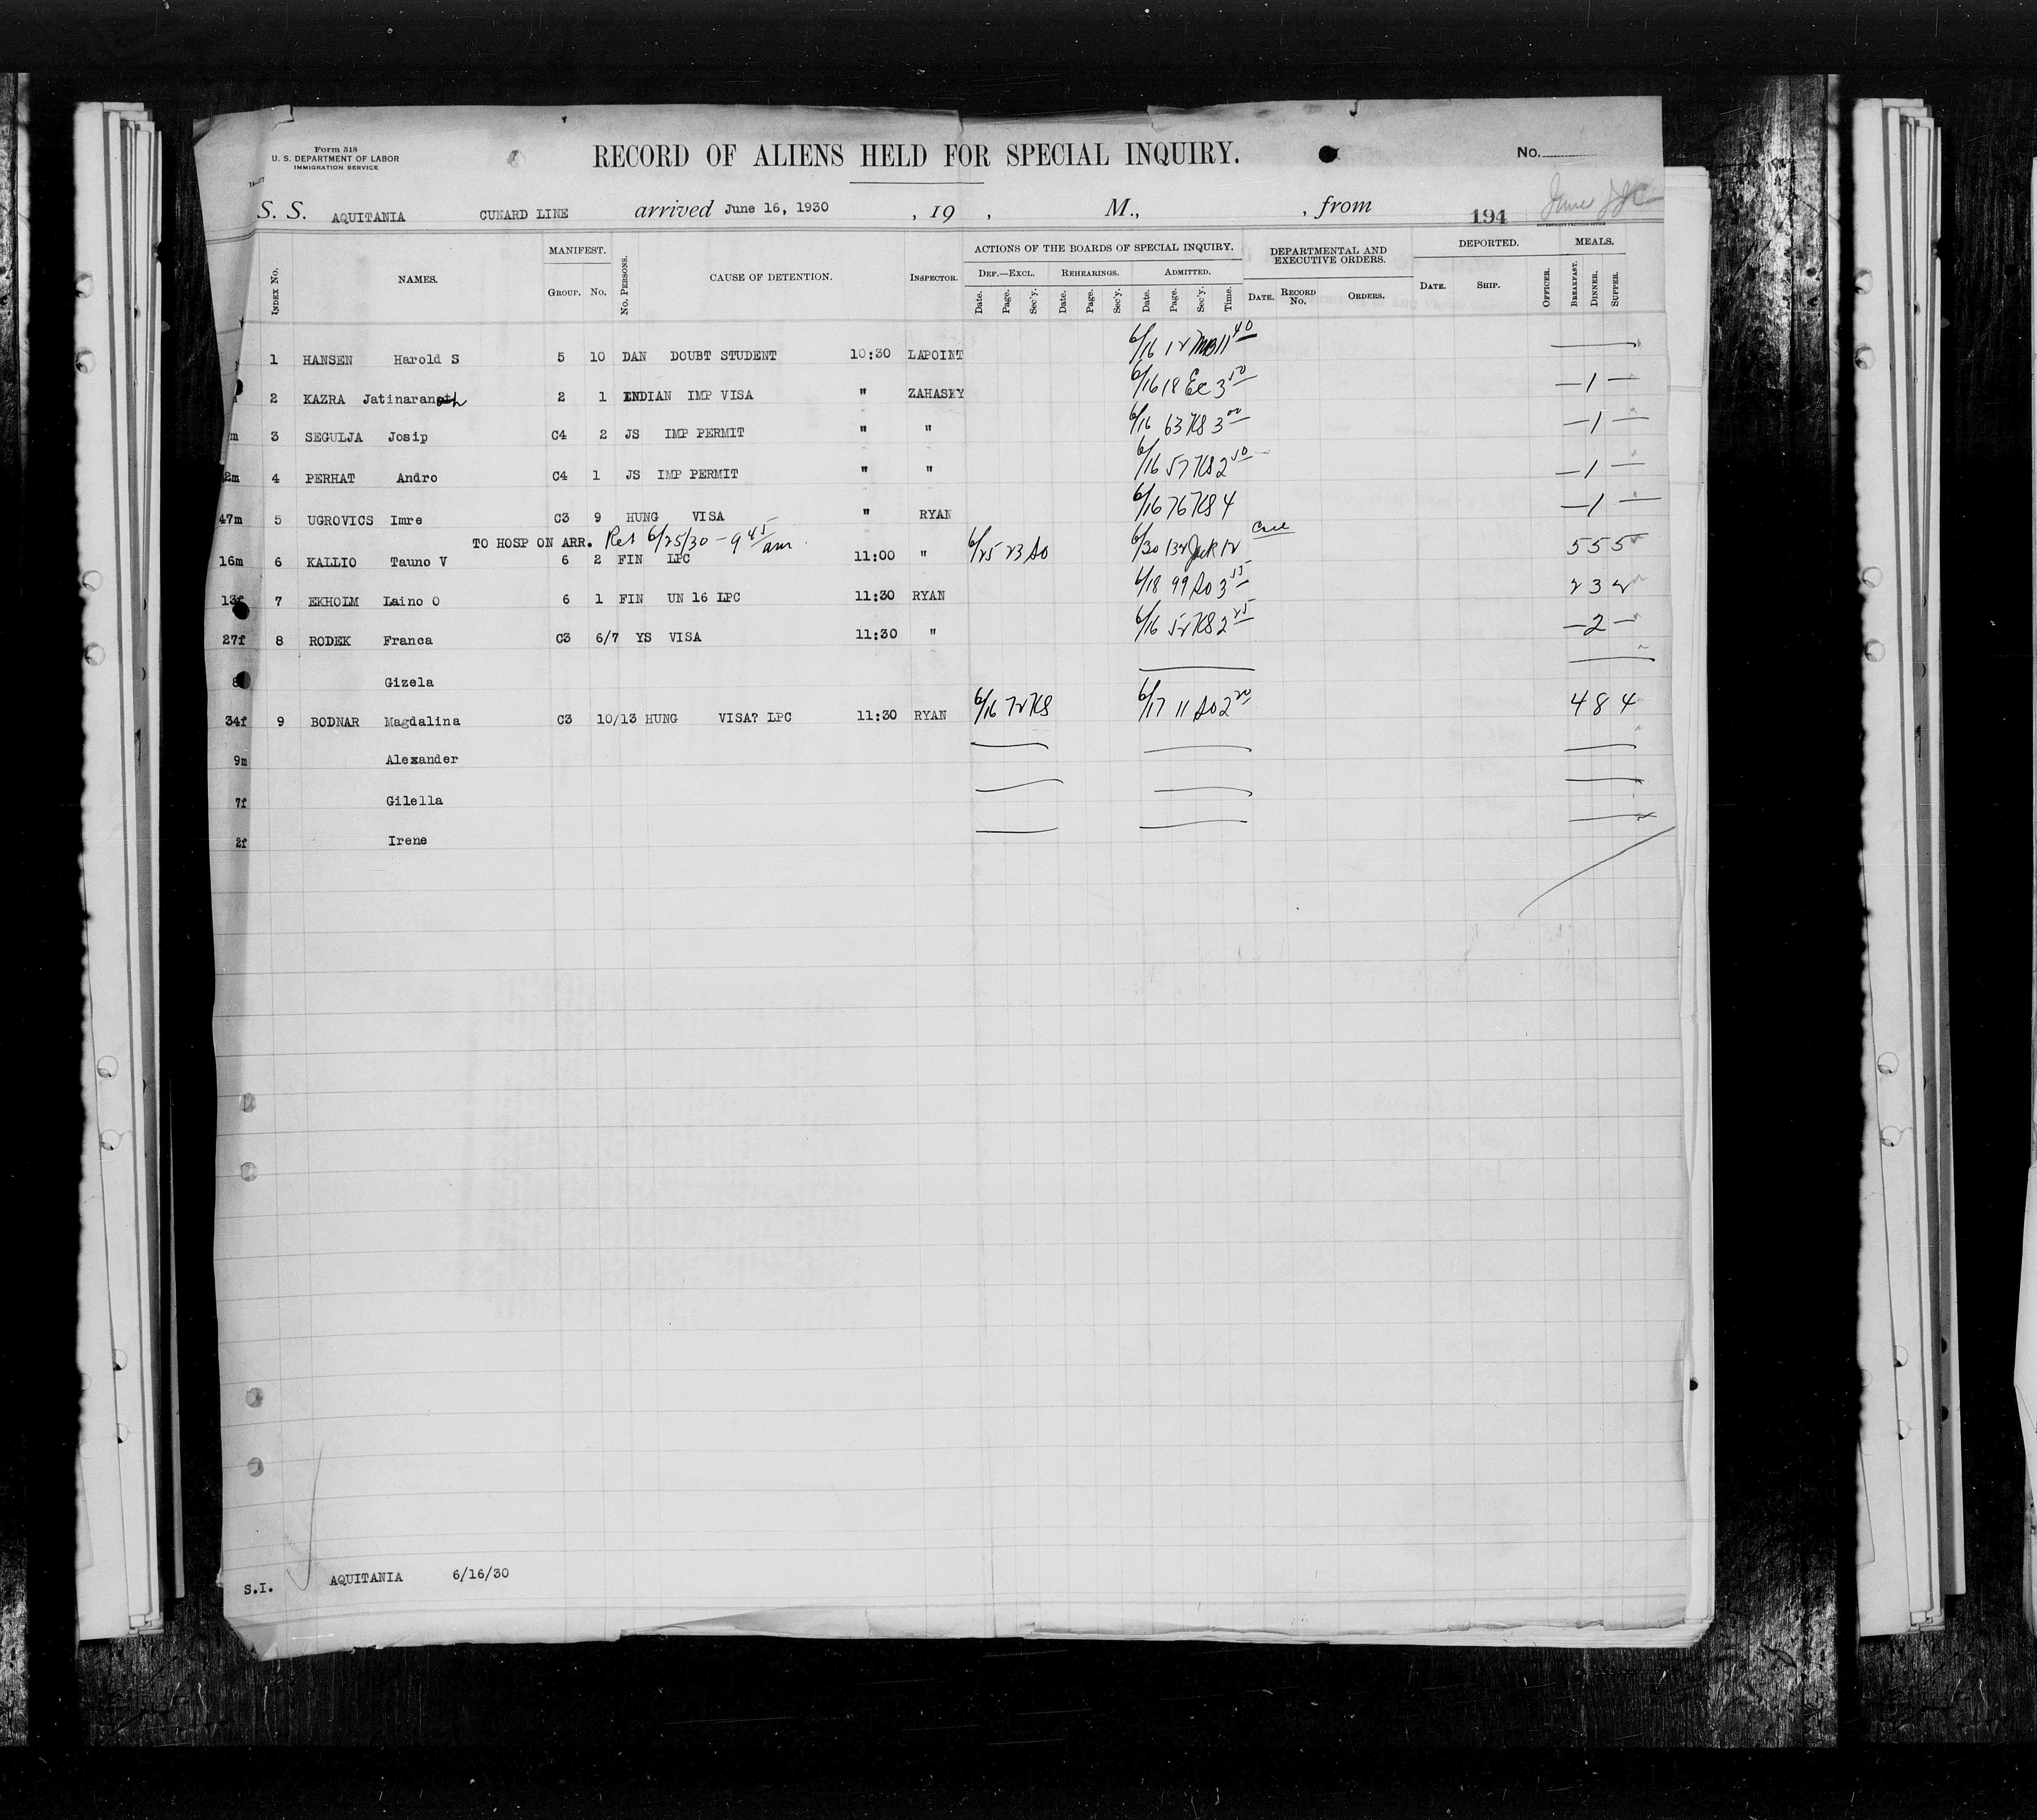 Form 518
U. S. DEPARTMENT OF LABOR
IMMIGRATION SERVICE
RECORD OF ALIENS HELD FOR SPECIAL INQUIRY.
No.
S. S. AQUITANIA CUNARD LINE arrived June 16, 1930 , 19 , M., , from 194
INDEX NO. NAMES. MANIFEST. GROUP. NO. NO. PERSONS. CAUSE OF DETENTION. INSPECTOR. ACTIONS OF THE BOARDS OF SPECIAL INQUIRY. DEPARTMENTAL AND EXECUTIVE ORDERS. DEPORTED. MEALS.
DEF.—EXCL. REHEARINGS. ADMITTED.
Date. Page. Sec'y. Date. Page. Sec'y. Date. Page. Sec'y. Time. DATE. RECORD NO. ORDERS. DATE. SHIP. OFFICER. BREAKFAST. DINNER. SUPPER.
1 HANSEN Harold S 5 10 DAN DOUBT STUDENT 10:30 LAPOINT 6/16 12 MB 11 40
2 KAZRA Jatinaranath 2 1 INDIAN IMP VISA " ZAHASKY 6/16 18 Ec 3 50 — 1 —
m 3 SEGULJA Josip C4 2 JS IMP PERMIT " " 6/16 63 KS 3 00 — 1 —
2m 4 PERHAT Andro C4 1 JS IMP PERMIT " " 6/16 57 KS 2 50 — 1 —
47m 5 UGROVICS Imre C3 9 HUNG VISA " RYAN 6/16 76 KS 4 — 1 —
TO HOSP ON ARR. Ret 6/25/30 - 9 45 am.
16m 6 KALLIO Tauno V 6 2 FIN LPC 11:00 " 6/25 23 So 6/30 132 12 5 5 5
13f 7 EKHOLM Laino O 6 1 FIN UN 16 LPC 11:30 RYAN 6/18 99 So 3 55 2 3 2
27f 8 RODEK Franca C3 6/7 YS VISA 11:30 " 6/16 52 KS 2 25 — 2 —
8 Gizela
34f 9 BODNAR Magdalina C3 10/13 HUNG VISA? LPC 11:30 RYAN 6/16 72 KS 6/17 11 So 2 20 4 8 4
9m Alexander
7f Gilella
2f Irene
S.I. AQUITANIA 6/16/30